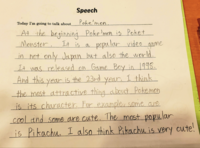 Speech
Today I'm going to talk about Poke'mon.
At the beginning Poke'mon is Poket
Monster. It is a popular video game
in not only Japan but also the world.
It was released on Game Boy in 1995.
And this year is the 23rd year. I think
the most attractive thing about Pokemon
is its character. For example, some are
cool and some are cute. The most popular
is Pikachu. I also think Pikachu is very cute!